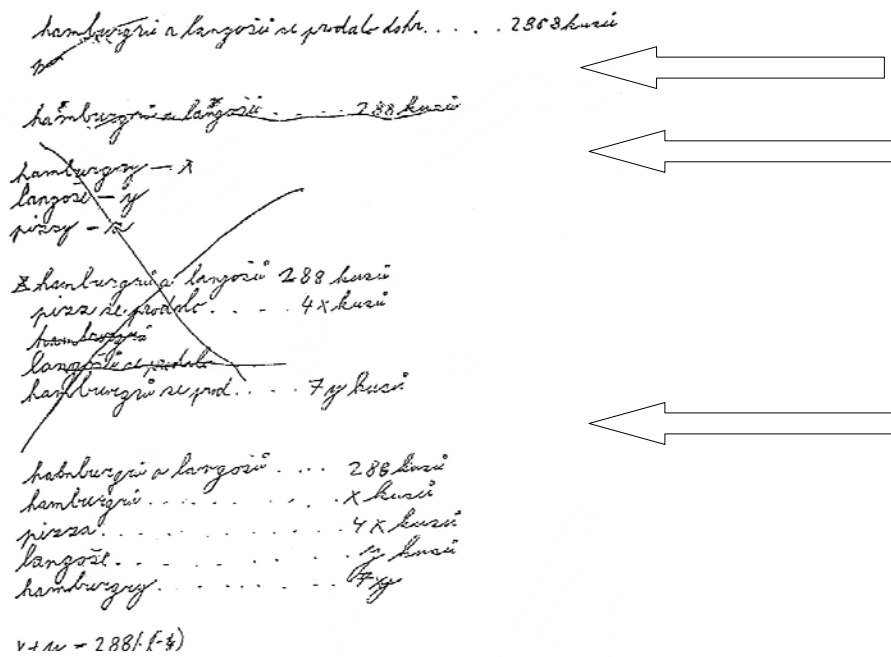 hamburgrů a langošů se prodalo dohr..... 2368 kusů
hamburgrů a langošů..... 288 kusů
hamburgry – x
langoše – y
pizzy – z
hamburgrů a langošů 288 kusů
pizz se prodalo.... 4x kusů
hamburgrů
langošů se prodalo
hamburgrů se prod..... 7y kusů
habnburgrů a langošů.... 288 kusů
hamburgrů......... x kusů
pizza............ 4x kusů
langoše.......... y kusů
hamburgry........ 7y
x+y = 288/·(-4)